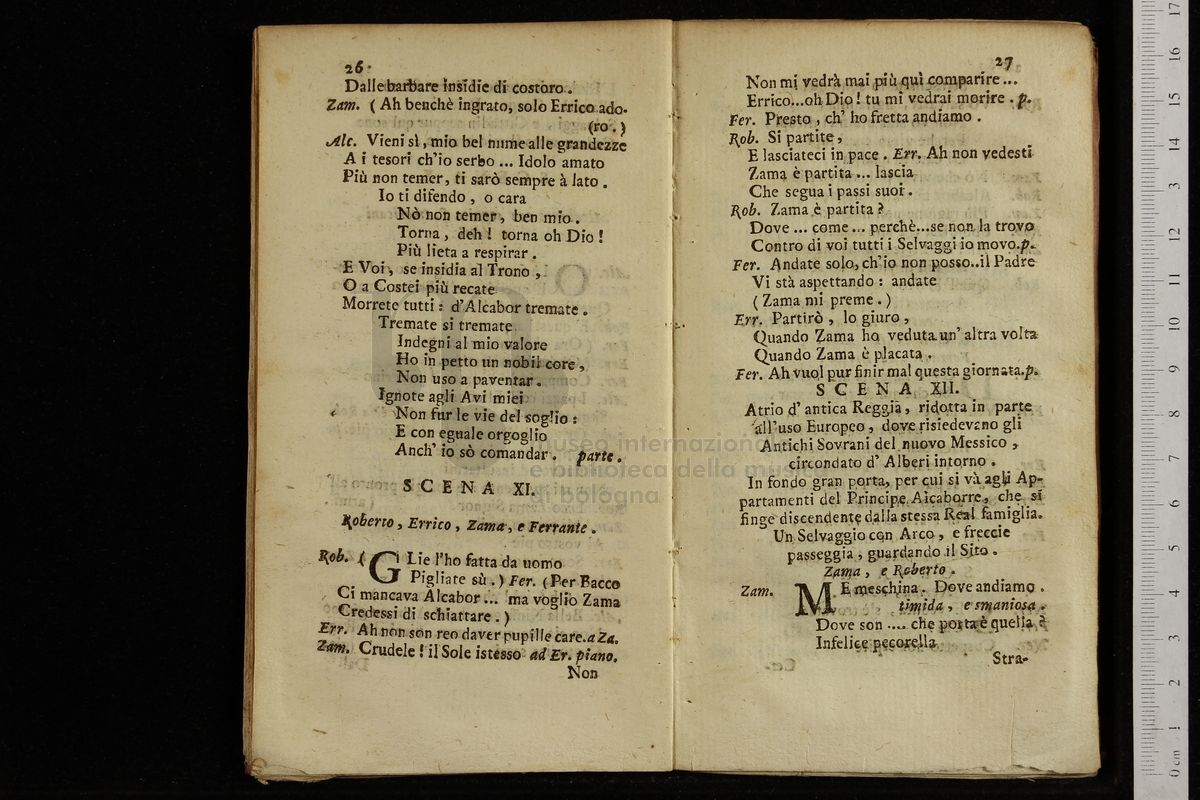 26
Dalle barbare insidie di costoro.
Zam. ( Ah benchè ingrato, solo Errico ado-
(ro.)
Alc. Vieni sì, mio bel nume alle grandezze
A i tesori ch'io serbo ... Idolo amato
Più non temer, ti sarò sempre à lato.
Io ti difendo, o cara
Nò non temer, ben mio.
Torna, deh! torna oh Dio!
Più lieta a respirar.
E Voi, se insidia al Trono,
O a Costei più recate
Morrete tutti: d'Alcabor tremate.
Tremate si tremate
Indegni al mio valore
Ho in petto un nobil core,
Non uso a paventar.
Ignote agli Avi miei
Non fur le vie del soglio:
E con eguale orgoglio
Anch' io sò comandar. parte.
SCENA XI.
Roberto, Errico, Zama, e Ferrante.
Rob. ( GLie l'ho fatta da uomo
Pigliate sù.) Fer. (Per Bacco
Ci mancava Alcabor ... ma voglio Zama
Credessi di schiattare.)
Err. Ah non son reo daver pupille care. a Za.
Zam. Crudele! il Sole istesso ad Er. piano.
Non
27
Non mi vedrà mai più quì comparire ...
Errico...oh Dio! tu mi vedrai morire. p.
Fer. Presto, ch' ho fretta andiamo.
Rob. Si partite,
E lasciateci in pace. Err. Ah non vedesti
Zama è partita ... lascia
Che segua i passi suoi.
Rob. Zama è partita?
Dove ... come ... perchè...se non la trovo
Contro di voi tutti i Selvaggi io movo.p.
Fer. Andate solo, ch'io non posso..il Padre
Vi stà aspettando: andate
(Zama mi preme.)
Err. Partirò, lo giuro,
Quando Zama ho veduta un' altra volta
Quando Zama è placata.
Fer. Ah vuol pur finir mal questa giornata.p.
SCENA XII.
Atrio d' antica Reggia, ridotta in parte
all'uso Europeo, dove risiedevano gli
Antichi Sovrani del nuovo Messico,
circondato d' Alberi intorno.
In fondo gran porta, per cui si và agli Ap-
partamenti del Principe Alcaborre, che si
finge discendente dalla stessa Real famiglia.
Un Selvaggio con Arco, e freccie
passeggia, guardando il Sito.
Zama, e Roberto.
Zam. ME meschina. Dove andiamo.
timida, e smaniosa.
Dove son .... che porta è quella?
Infelice pecorella
Stra-
museo internazionale
e biblioteca della musica
di bologna
0 cm 1 2 3 4 5 6 7 8 9 10 11 12 13 14 15 16 17